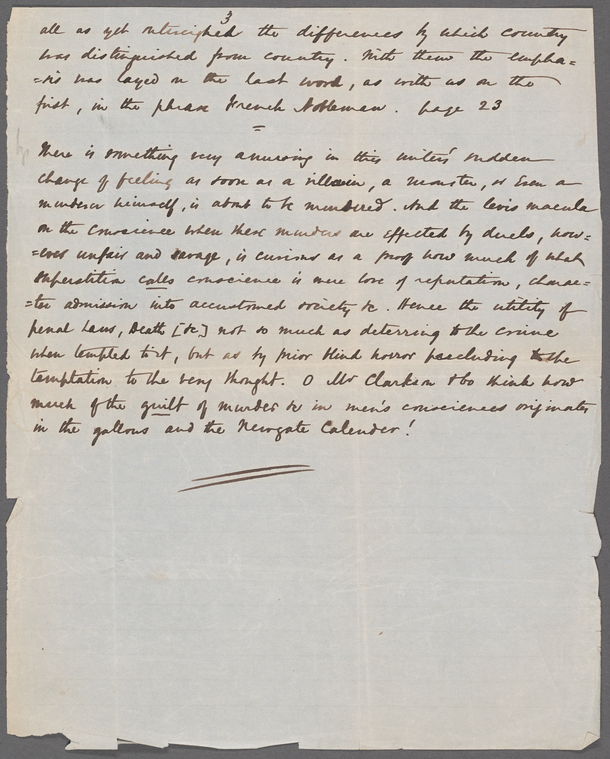 3
all as yet outweighed the differences by which country
was distinguished from country. With them the empha=
=sis was layed on the last word, as with us on the
first, in the phrase French Nobleman. page 23
=
There is something very amusing in this writer's sudden
change of feeling as soon as a villain, a monster, or even a
murderer himself, is about to be murdered. And the levis macula
on the conscience when these murders are effected by duels, how=
=ever unfair and savage, is curious as a proof how much of what
superstition cales conscience is mere love of reputation, charac=
=ter admission into accustomed society &c. Hence the utility of
penal Laws, Death [&c] not so much as deterring to the crime
when tempted to it, but as by prior blind horror precluding to the
temptation to the very thought. O Mr Clarkson &to think how
much of the guilt of murder &c in men's consciences originates
in the gallows and the Newgate Calender!